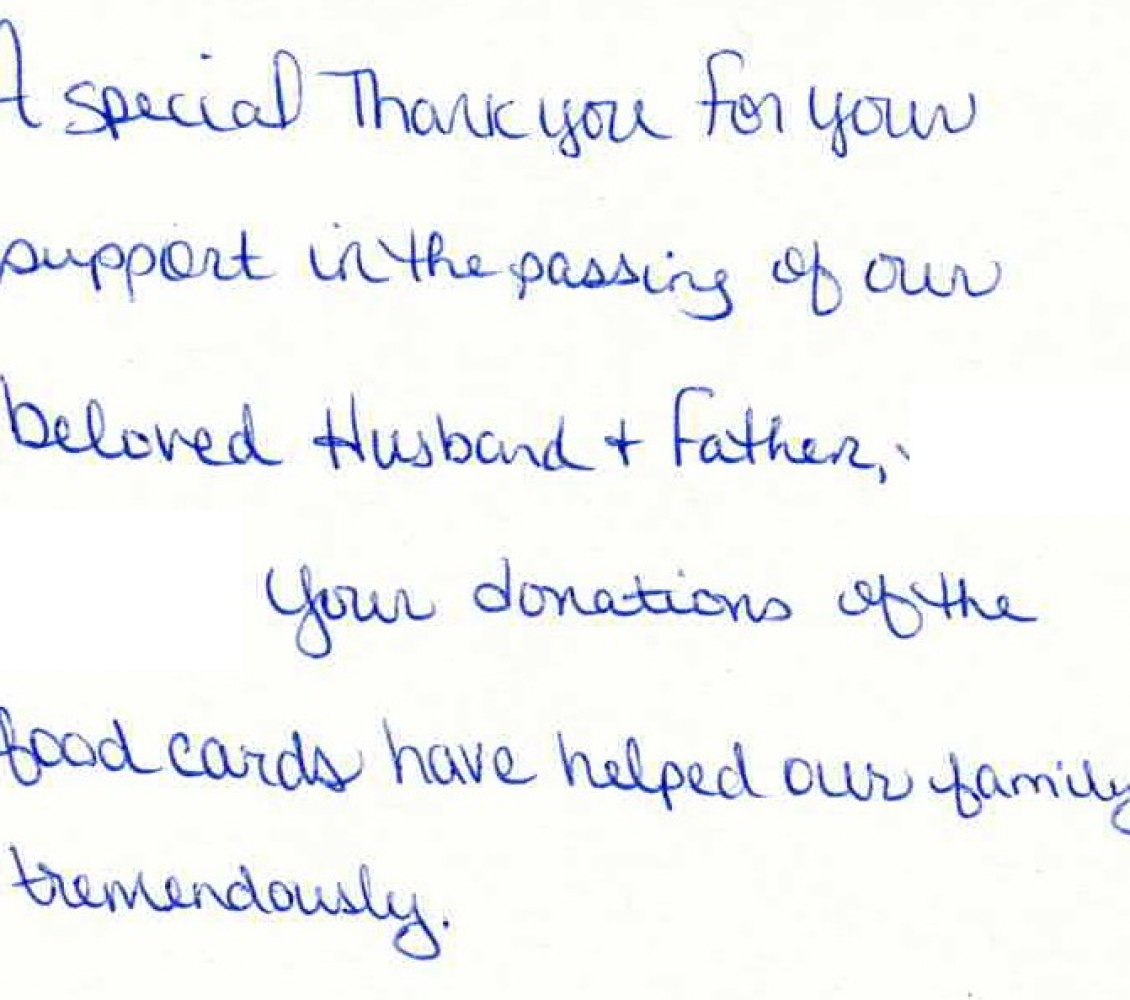 A special Thank you for your
support in the passing of our
beloved Husband + Father,
Your donations of the
food cards have helped our family
tremendously.